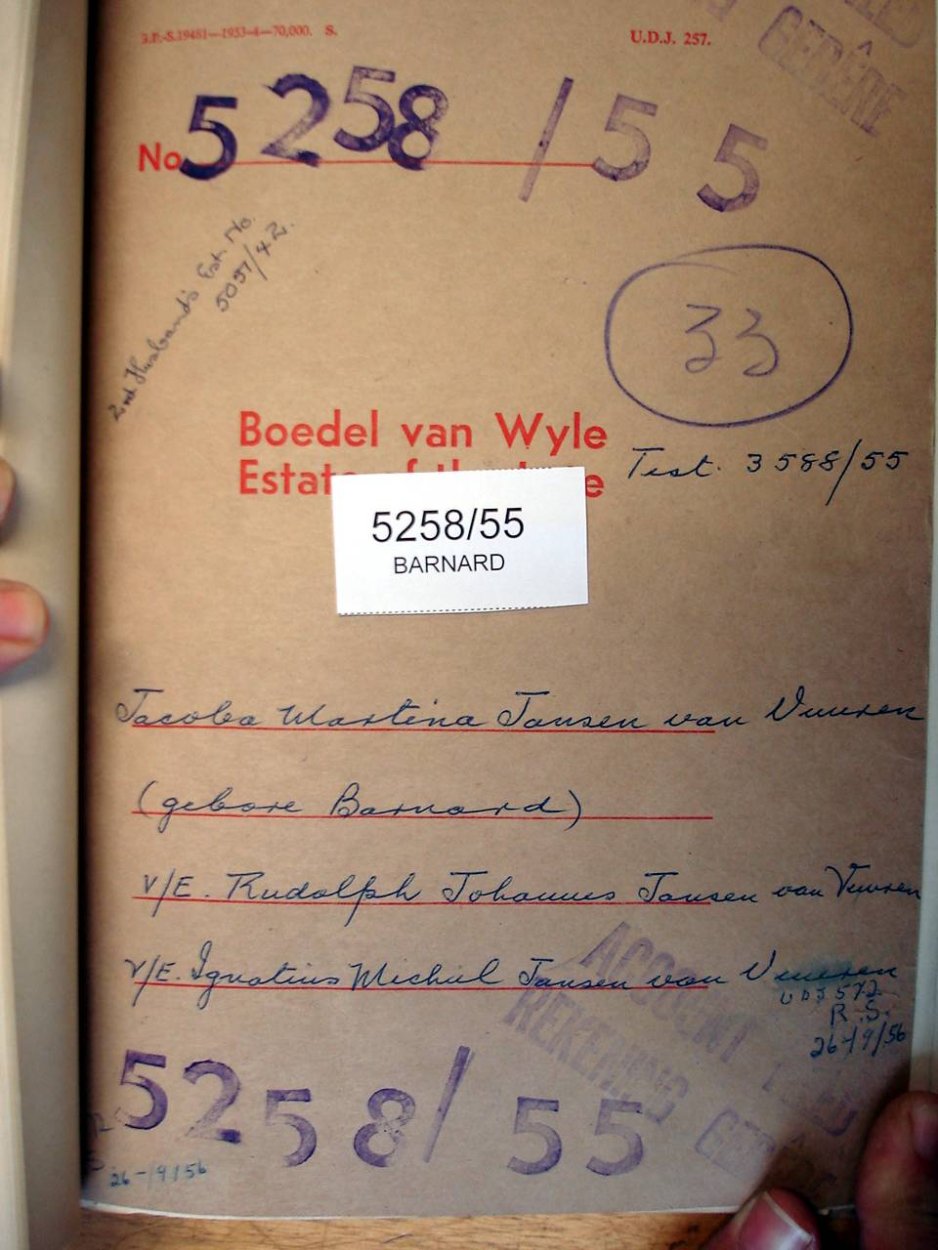 J.P.-S.19481—1953-4—70,000. S.
U.D.J. 257.
No 5258/55
2nd Husband's Est. No.
5037/42.
33
Boedel van Wyle
Estate of the
Test. 3588/55
5258/55
BARNARD
Jacoba Martina Jansen van Vuuren
(gebore Barnard)
V/E. Rudolph Johannes Jansen van Vuuren
V/E. Ignatius Michiel Jansen van Vuuren
UDJ 572
R.S.
26/9/56
ACCOUNT
REKENING
5258/55
26-/9/56